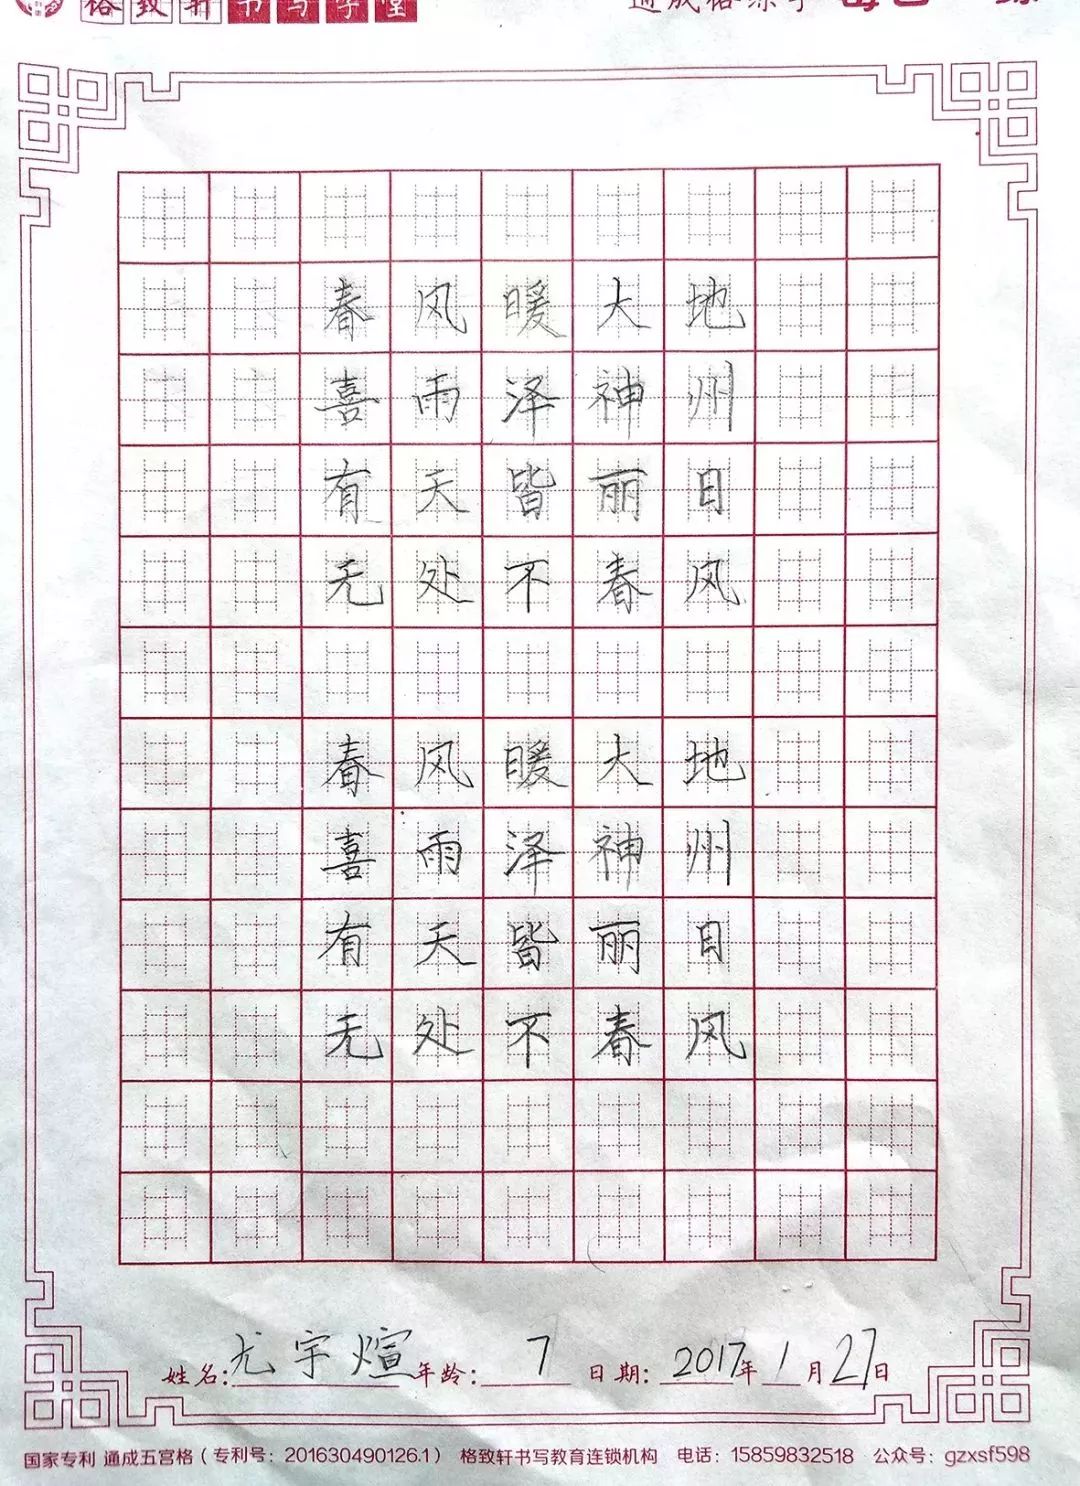 格致轩书写学堂
通成格练字
春风暖大地
喜雨泽神州
有天皆丽日
无处不春风
春风暖大地
喜雨泽神州
有天皆丽日
无处不春风
姓名:尤宇煊 年龄:7 日期:2017年1月27日
国家专利 通成五宫格（专利号：201630490126.1） 格致轩书写教育连锁机构 电话：15859832518 公众号：gzxsf598